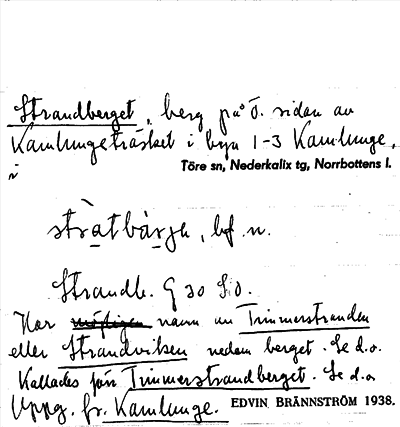 Strandberget, berg på ö. sidan av
Kamlungeträsket i byn 1-3 Kamlunge,
i
Töre sn, Nederkalix tg, Norrbottens l.
stràtbàrjə, bf. n.
Strandb. G 30 S.O.
Har namn av Timmerstranden
eller Strandviken nedom berget. Se d.o.
Kallades förr Timmerstrandberget. Se d.o
Uppg. fr. Kamlunge. EDVIN BRÄNNSTRÖM 1938.